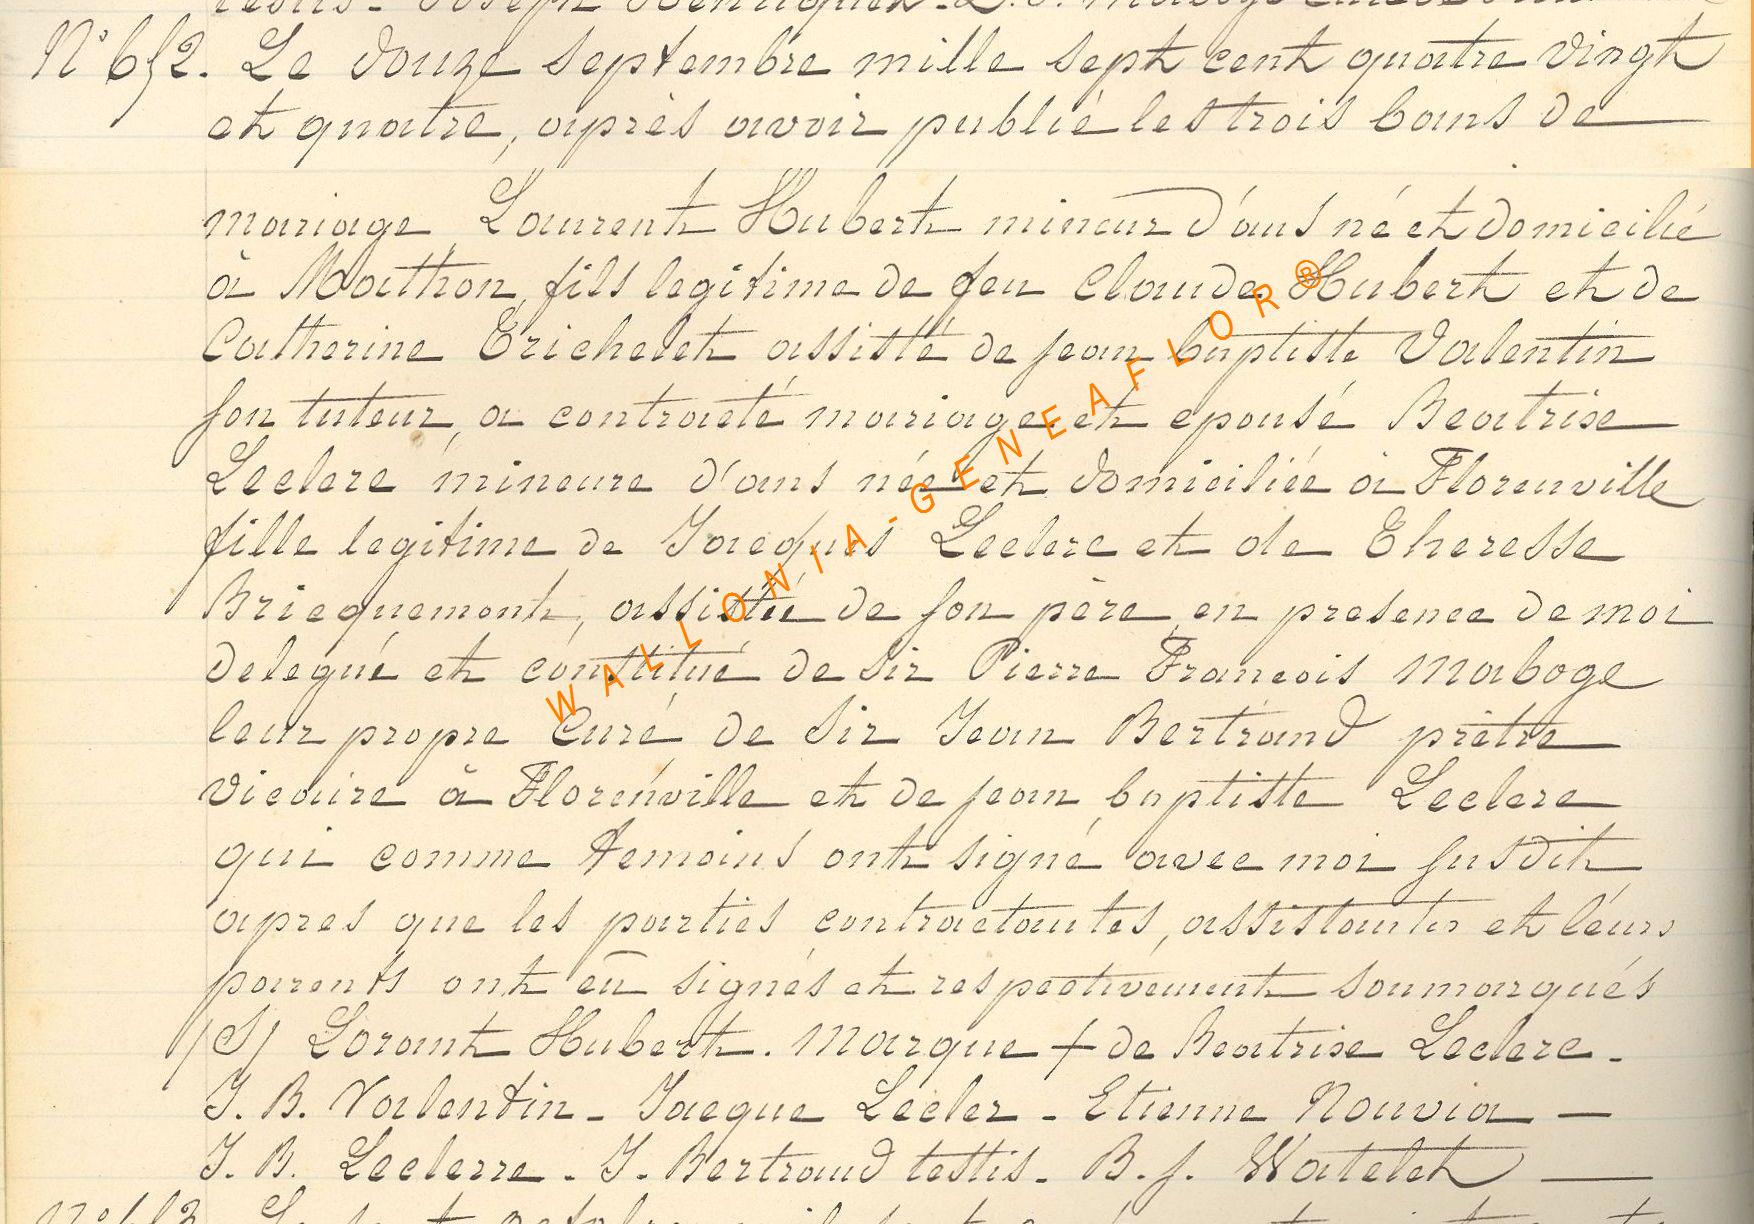 N° 652. Le douze septembre mille sept cent quatre vingt
et quatre, après avoir publié les trois bans de
mariage Laurent Hubert mineur d'ans né et domicilié
à Mathon, fils legitime de feu Claude Hubert et de
Catherine Trichelet assisté de jean baptiste Valentin
son tuteur, a contracté mariage et epousé Beatrise
Leclerc mineure d'ans née et domiciliée à Florenville
fille legitime de Jacques Leclerc et de Theresse
Bricquemont, assistée de son père, en presence de moi
delegué et constitué de Sir Pierre Francois Maboge
leur propre Curé de Sir Jean Bertrand prêtre
vicaire à Florenville et de jean baptiste Leclere
qui comme temoins ont signé avec moi susdit
apres que les parties contractantes, assistants et leurs
parents ont eu signés et respectivement sousmarqués
(S) Lorant Hubert. Marque + de Beatrise Leclerc.
J. B. Valentin - Jacque Lecler - Etienne Nouvia —
J. B. Leclerre - J. Bertrand testis - B. j. Watelet —
WALLONIA-GENEAFLOR®